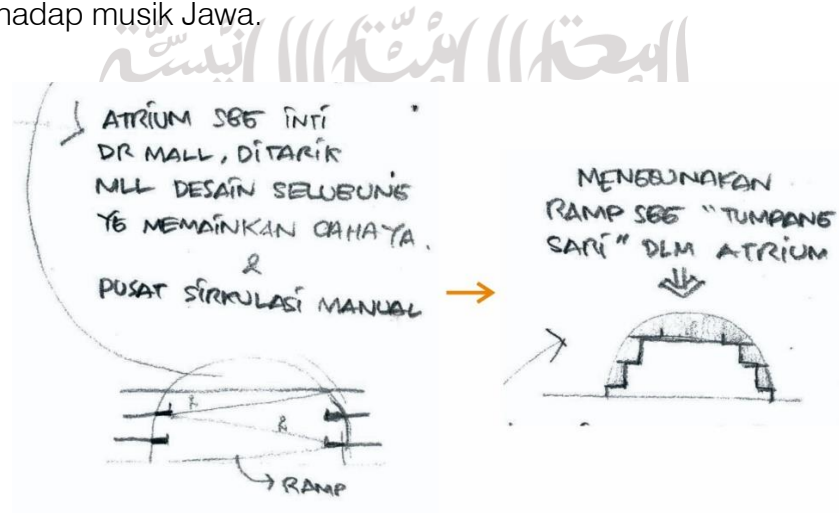 hadap musik Jawa.
ATRIUM SBG INTI
DR MALL, DITARIK
MLL DESAIN SELUBUNG
YG MEMAINKAN CAHAYA.
&
PUSAT SIRKULASI MANUAL
RAMP
MENGGUNAKAN
RAMP SBG "TUMPANG
SARI" DLM ATRIUM